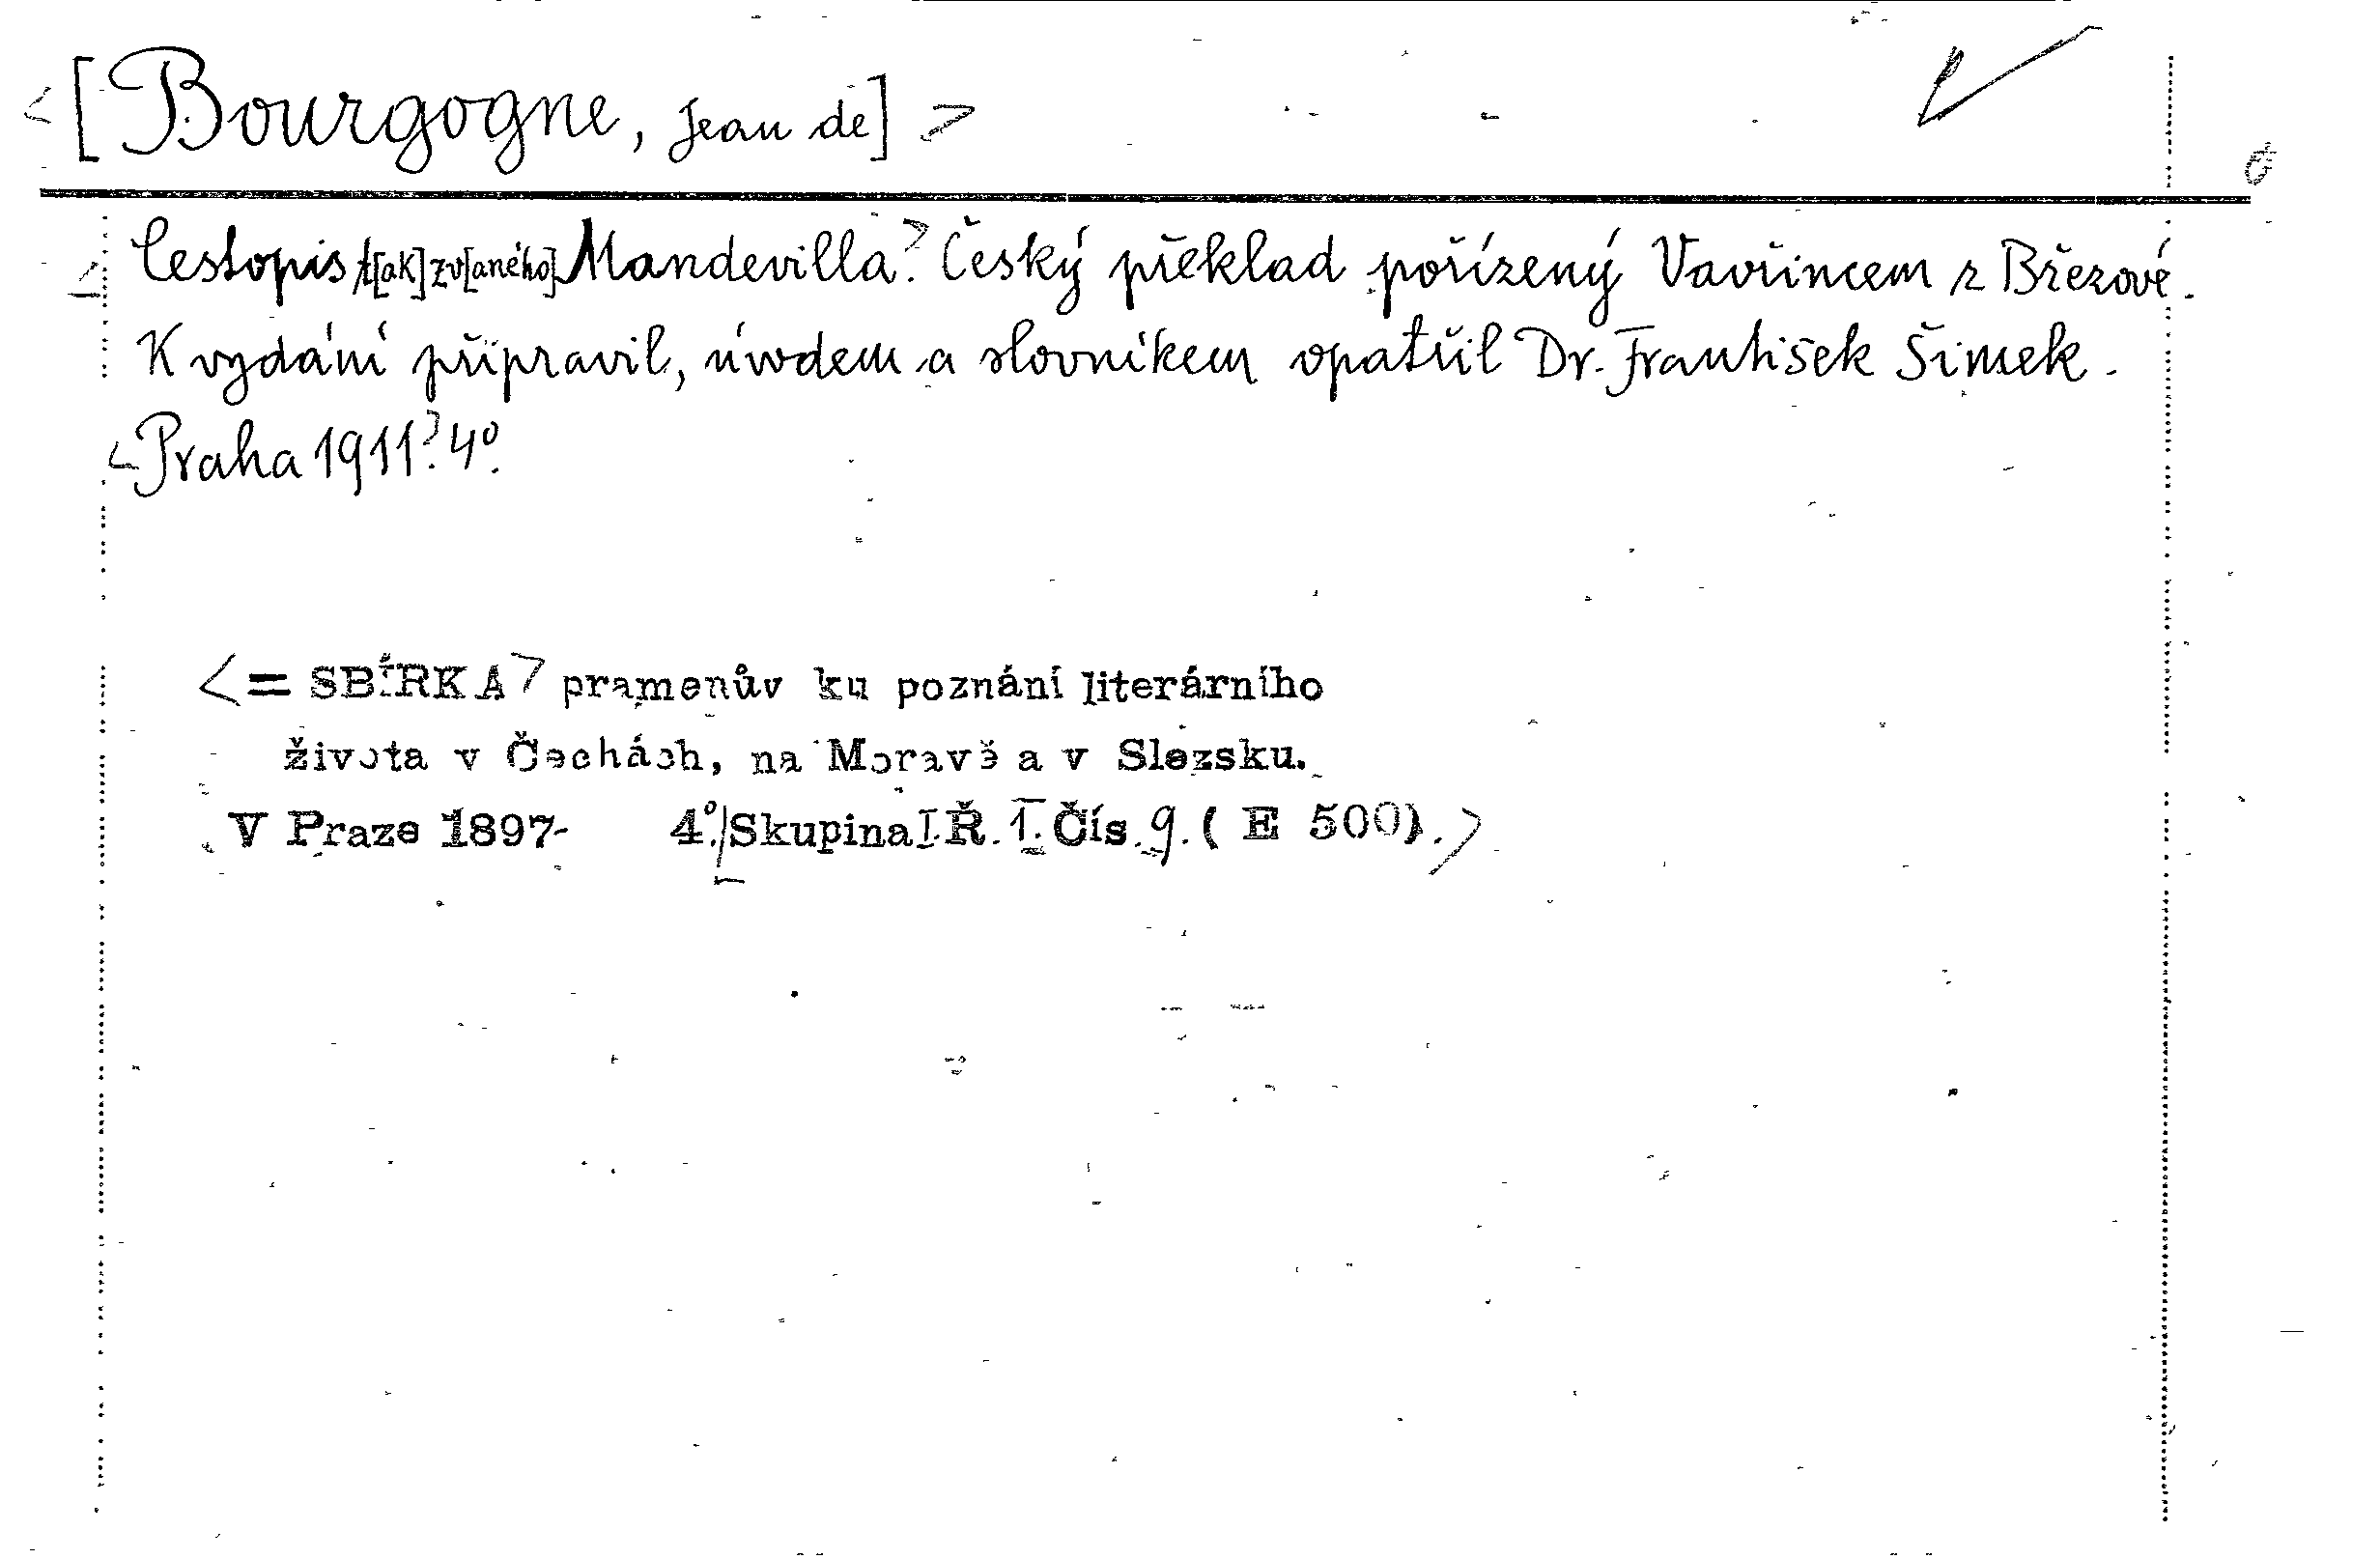 <[Bourgogne, Jean de]>
<Cestopis t[ak] zv[aného] Mandevilla>. Český překlad pořízený Vavřincem z Březové.
K vydání připravil, úvodem a slovníkem opatřil Dr. František Šimek.
<Praha 1911>. 4º.
<= SBÍRKA> pramenův ku poznání literárního
života v Čechách, na Moravě a v Slezsku.
V Praze 1897- 4º./Skupina I. Ř. 1. Čís. 9. (E 500).>